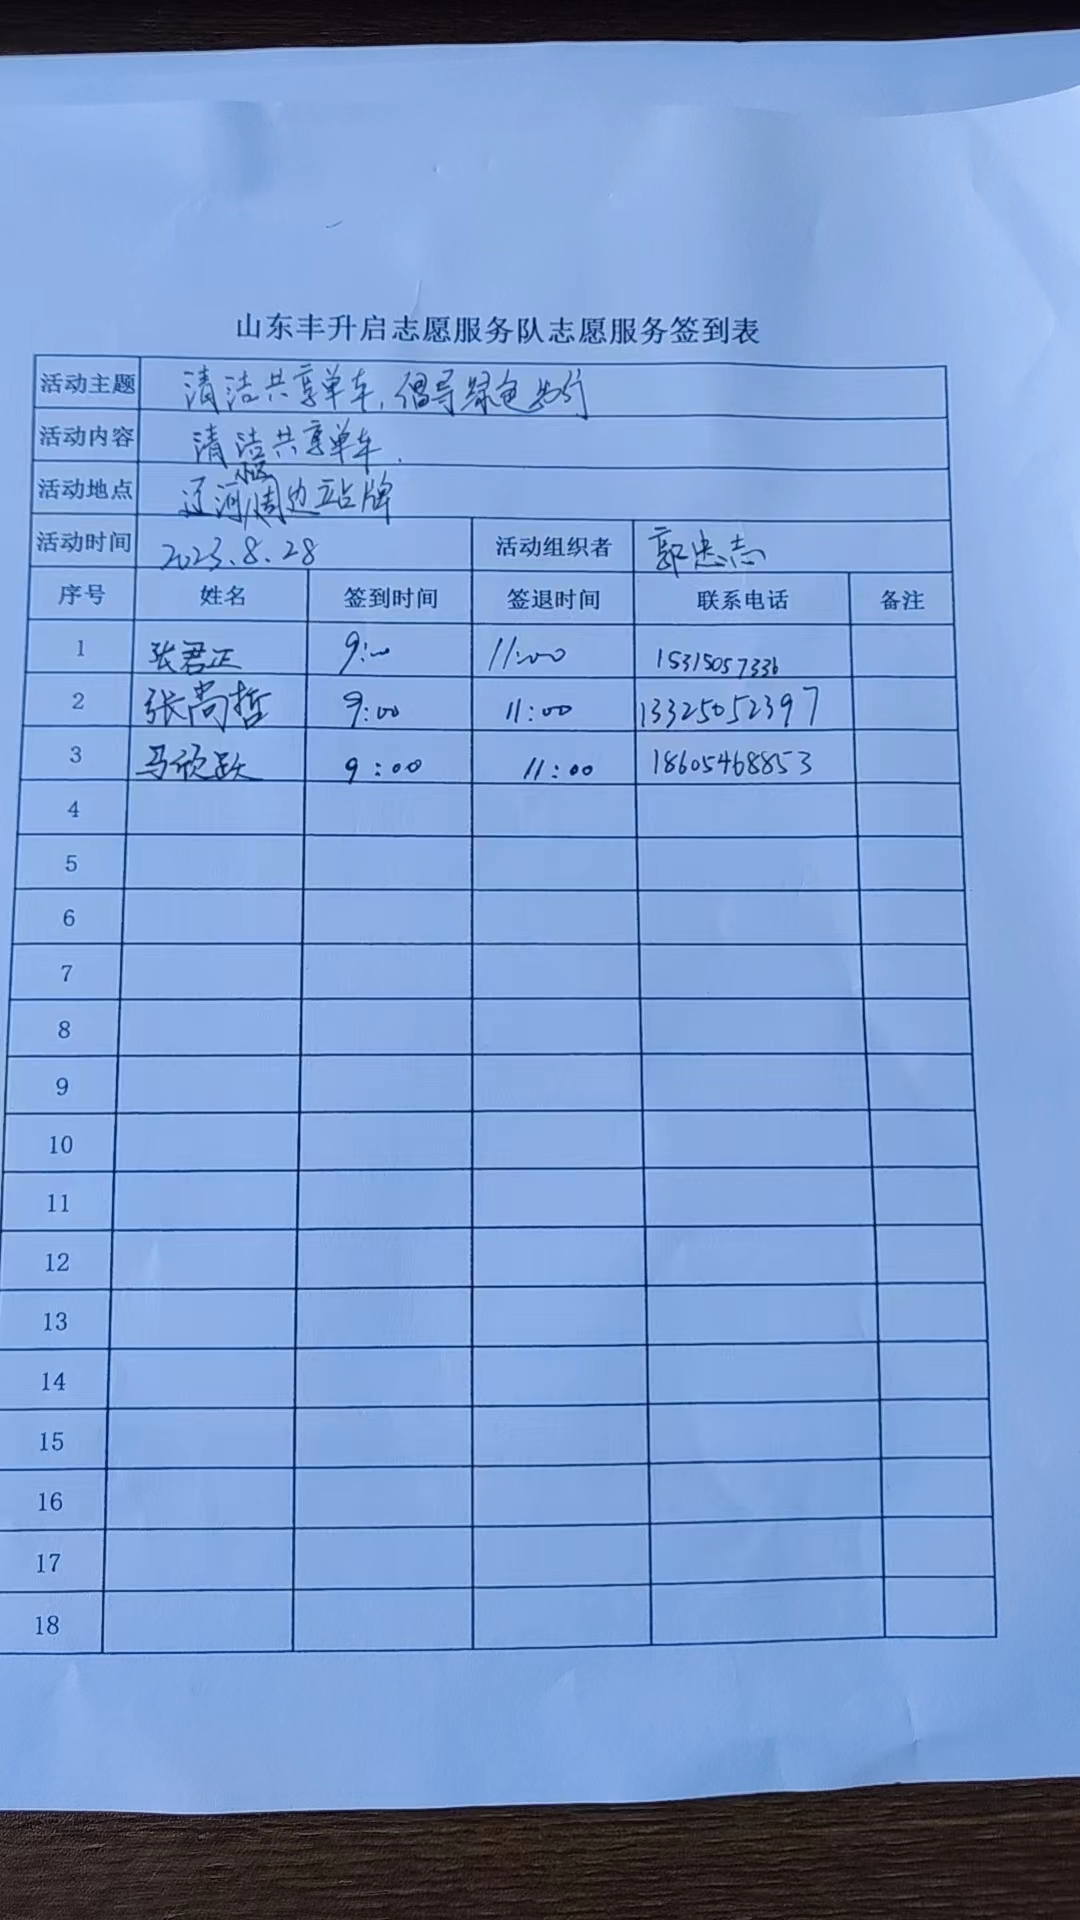 山东丰升启志愿服务队志愿服务签到表
活动主题 清洁共享单车,倡导绿色出行
活动内容 清洁共享单车.
活动地点 辽河小区周边站牌
活动时间 2023.8.28 活动组织者 郭忠志
序号 姓名 签到时间 签退时间 联系电话 备注
1 张君正 9:00 11:00 15315057336
2 张尚哲 9:00 11:00 13325052397
3 马欣跃 9:00 11:00 18605468853
4
5
6
7
8
9
10
11
12
13
14
15
16
17
18